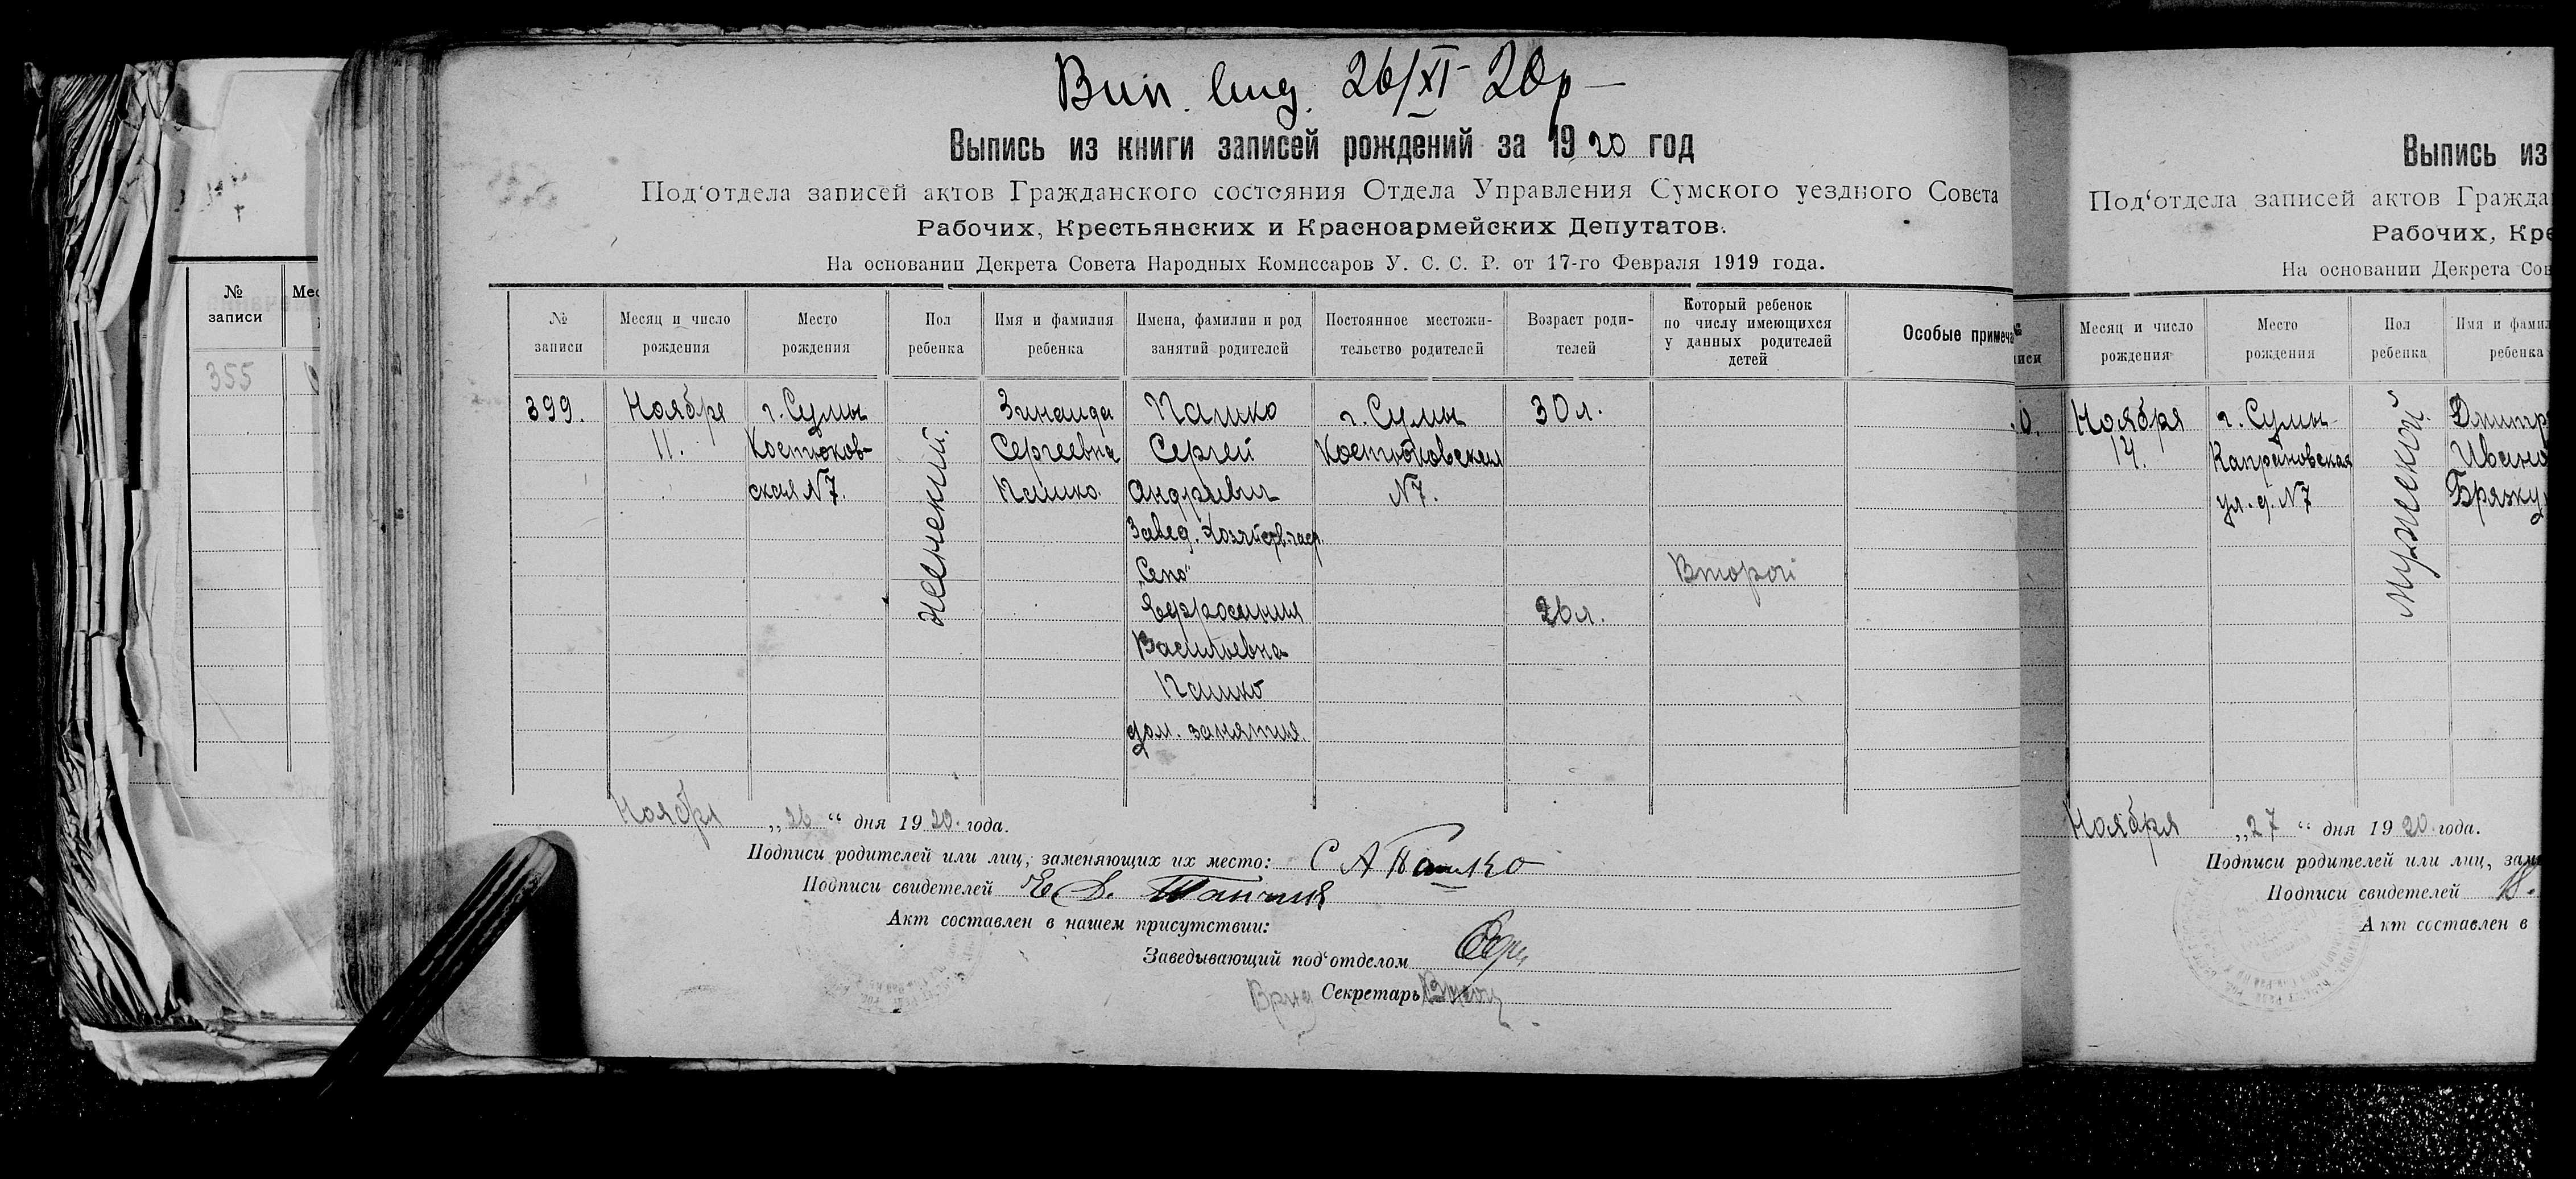 №
записи
355
Вип. вид. 26/XI 20р
Выпись из книги записей рождений за 1920 год
Под‘отдела записей актов Гражданского состояния Отдела Управления Сумского уездного Совета
Рабочих, Крестьянских и Красноармейских Депутатов.
На основании Декрета Совета Народных Комиссаров У. С. С. Р. от 17-го Февраля 1919 года.
№ записи
Месяц и число рождения
Место рождения
Пол ребенка
Имя и фамилия ребенка
Имена, фамилии и род занятий родителей
Постоянное местожительство родителей
Возраст родителей
Который ребенок по числу имеющихся у данных родителей детей
Особые примеча
399.
Ноября
11.
г. Сумы
Костюков-
ская №7.
женский.
Зинаида
Сергеевна
Пашко.
Пашко
Сергей
Андреевич
Завед. Хозяйств.
„Сепо"
Ефросиния
Васильевна
Пашко
дом. занятия.
г. Сумы
Костюковская
№7.
30 л.
26 л.
Второй
Ноября „26“ дня 1920. года.
Подписи родителей или лиц, заменяющих их место: С А Пашко
Подписи свидетелей
Акт составлен в нашем присутствии:
Заведывающий под‘отделом
Врид Секретарь
Выпись из
Под‘отдела записей актов Гражда
Рабочих, Кре
На основании Декрета Сов
№
иси
Месяц и число рождения
Место рождения
Пол ребенка
Имя и фамил
ребенка
0.
Ноября
14.
г. Сумы
Капрановская
ул. д. №7
мужеской
Дмитр
Ивано
Брязку
Ноября „27“ дня 1920 года.
Подписи родителей или лиц, зам
Подписи свидетелей
Акт составлен в